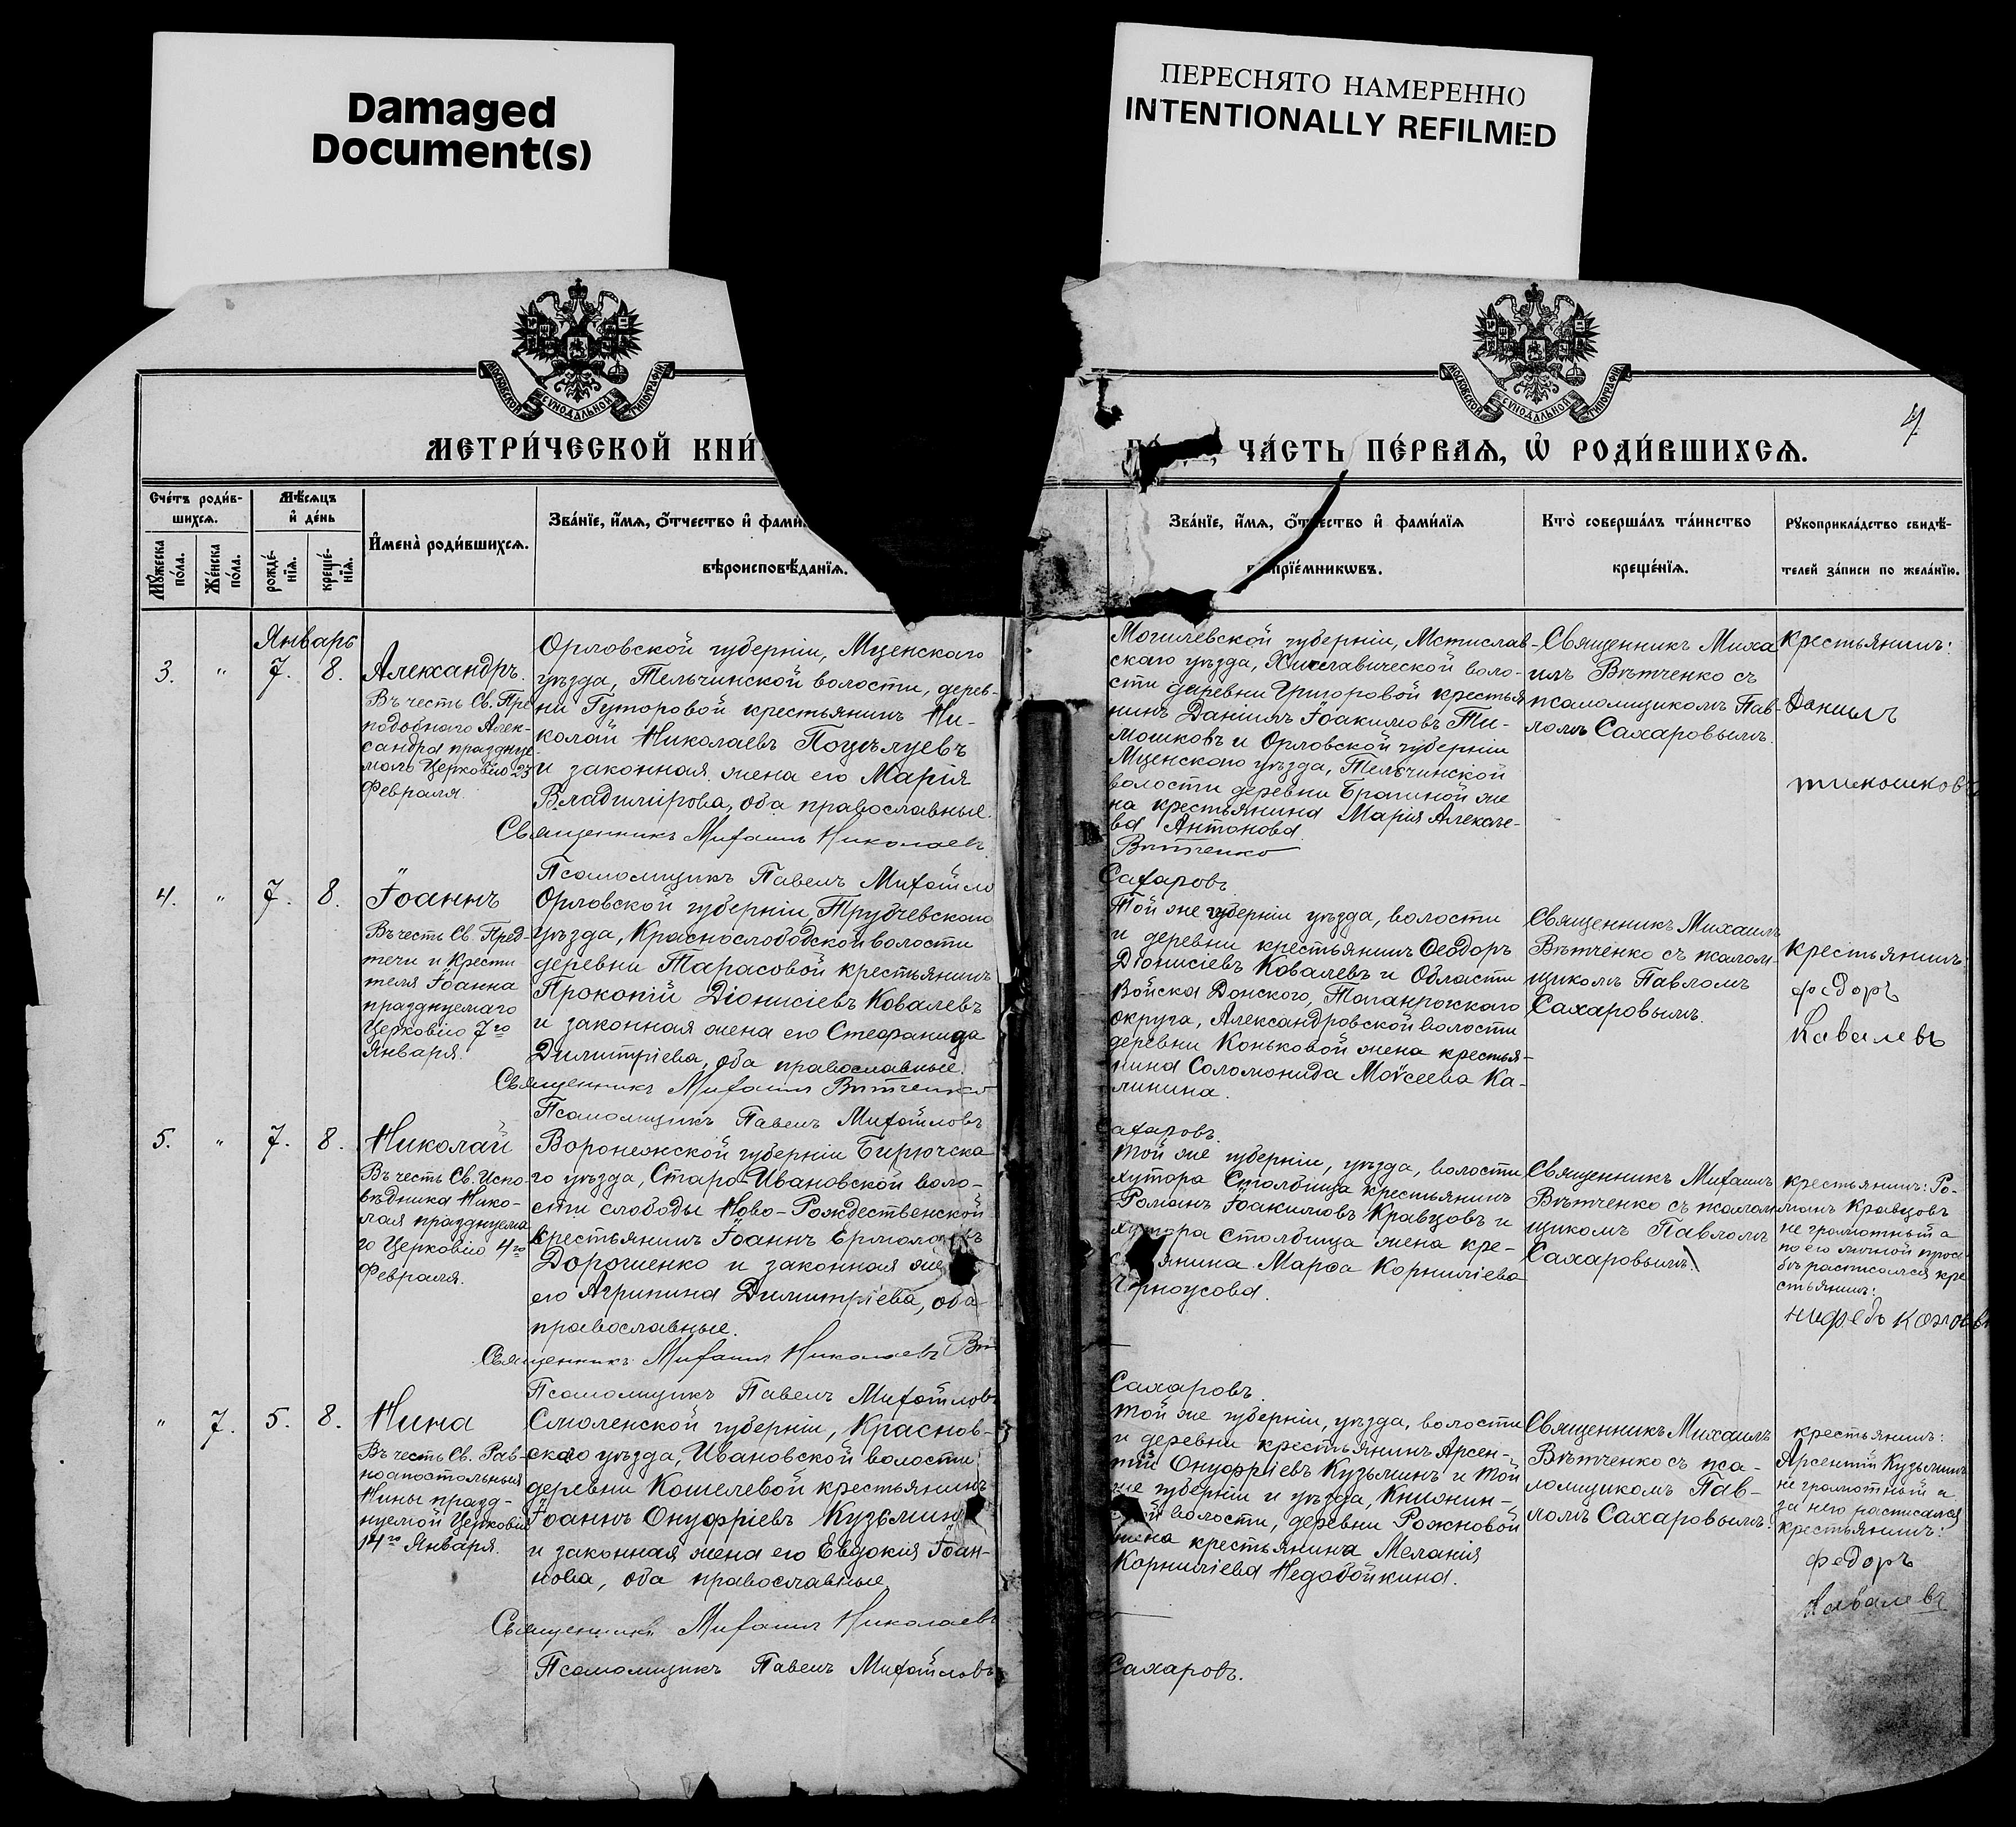 Damaged
Document(s)
ПЕРЕСНЯТО НАМЕРЕННО
INTENTIONALLY REFILMED
МОСКОВСКОЙ СѴНОДАЛЬНОЙ ТИПОГРАФІИ
МОСКОВСКОЙ СѴНОДАЛЬНОЙ ТИПОГРАФІИ
4
МЕТРИ́ЧЕСКОЙ КНИ́
ЧА́СТЬ ПЕ́РВАѦ, Ѡ҆ РОДИ́ВШИХСѦ.
Сче́тъ роди́в-
шихсѧ.
Мꙋ́жеска
по́ла.
Же́нска
по́ла.
Мѣ́сѧцъ
и҆ де́нь
рожде́-
нїѧ.
креще́-
нїѧ.
И҆мена̀ роди́вшихсѧ.
Зва́нїе, и҆́мѧ, ѻ҆́тчество и҆ фами́
вѣроисповѣ́данїѧ.
Зва́нїе, и҆́мѧ, ѻ҆́тчество и҆ фами́лїѧ
прїе́мникѡвъ.
Кто̀ соверша́лъ та́инство
креще́нїѧ.
Рꙋкоприкла́дство свидѣ́-
телей за́писи по жела́нїю.
Январь
3. " 7. 8.
Александръ.
Въ честь Св. Пре
подобнаго Алек-
сандра празднуе
маго Церковію 23
Февраля.
Орловской губерніи, Мценскаго
уѣзда, Тельчинской волости, дерев-
ни Гуторовой крестьянинъ Ни-
колай Николаевъ Поцѣлуевъ
и законная жена его Марія
Владимірова, оба православные.
Священникъ Михаилъ Николаевъ
Псаломщикъ Павелъ Михайло
Могилевской губерніи, Мстислав-
скаго уѣзда, Хиславической воло-
сти деревни Григоровой крестья
нинъ Даніилъ Іоакимовъ Ти-
мошковъ и Орловской губерніи
Мценскаго уѣзда, Тельчинской
волости деревни Брагиной же
на крестьянина Марія Алексѣе-
ва Антонова.
Вѣтченко
Сахаровъ.
Священникъ Миха
илъ Вѣтченко съ
псаломщикомъ Пав-
ломъ Сахаровымъ.
Крестьянинъ:
Данилъ
тимошковъ
4. " 7. 8.
Іоаннъ
Въ честь Св. Пред-
течи и Крести
теля Іоанна
празднуемаго
Церковію 7го
Января.
Орловской губерніи, Трубчевскаго
уѣзда, Краснослободской волости
деревни Тарасовой крестьянинъ
Прокопій Діонисіевъ Ковалевъ
и законная жена его Стефанида
Димитріева, оба православные.
Священникъ Михаилъ Вѣтченко
Псаломщикъ Павелъ Михайловъ
Той же губерніи уѣзда, волости
и деревни крестьянинъ Ѳеодоръ
Діонисіевъ Ковалевъ и Области
Войска Донского, Таганрогскаго
округа, Александровской волости
деревни Коньковой жена крестья-
нина Соломонида Моѵсеева Ка-
линина.
ахаровъ.
Священникъ Михаилъ
Вѣтченко съ псалом-
щикомъ Павломъ
Сахаровымъ.
крестьянинъ:
федоръ
Кавалевъ
5. " 7. 8.
Николай
Въ честь Св. Испо-
вѣдника Нико-
лая празднуема
го Церковію 4го
Февраля.
Воронежской губерніи Бирючска
го уѣзда, Старо-Ивановской воло-
сти слободы Ново-Рождественской
крестьянинъ Іоаннъ Ермолаевъ
Дорошенко и законная же
его Агрипина Димитріева, оба
православные.
Священникъ Михаилъ Николаевъ Вѣт
Псаломщикъ Павелъ Михайловъ
Той же губерніи, уѣзда, волости
хутора Столбища крестьянинъ
Романъ Іоакимовъ Кравцовъ и
хутора Столбища жена кре-
стьянина Марѳа Корниліева
Черноусова.
Сахаровъ.
Священникъ Михаилъ
Вѣтченко съ псалом
щикомъ Павломъ
Сахаровымъ.
крестьянинъ: Ро-
манъ Кравцовъ
не грамотный а
по его личной прось
бѣ расписался кре
стьянинъ:
" 7. 5. 8.
Нина
Въ честь Св. Рав-
ноапостольныя
Нины празд-
нуемой Церковію
14го Января.
Смоленской губерніи, Краснов-
скаго уѣзда, Ивановской волости
деревни Кошелевой крестьянинъ
Іоаннъ Онуфріевъ Кузьминъ
и законная жена его Евдокія Іоан-
нова, оба православные
Священникъ Михаилъ Николаевъ
Псаломщикъ Павелъ Михайловъ
Той же губерніи, уѣзда, волости
и деревни крестьянинъ Арсен-
тій Онуфріевъ Кузьминъ и той
же губерніи и уѣзда, Княжин-
ской волости, деревни Рожновой
жена крестьянина Меланія
Корниліева Недобойкина.
Сахаровъ.
Священникъ Михаилъ
Вѣтченко съ пса-
ломщикомъ Пав-
ломъ Сахаровымъ.
крестьянинъ:
Арсентій Кузьминъ
не грамотный а
за него расписался
крестьянинъ:
федоръ
Кавалевъ